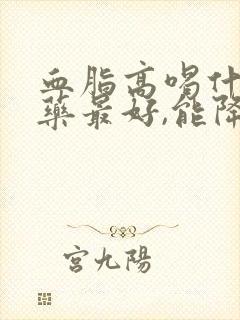 血脂高喝什
藥最好,能降
宮九陽